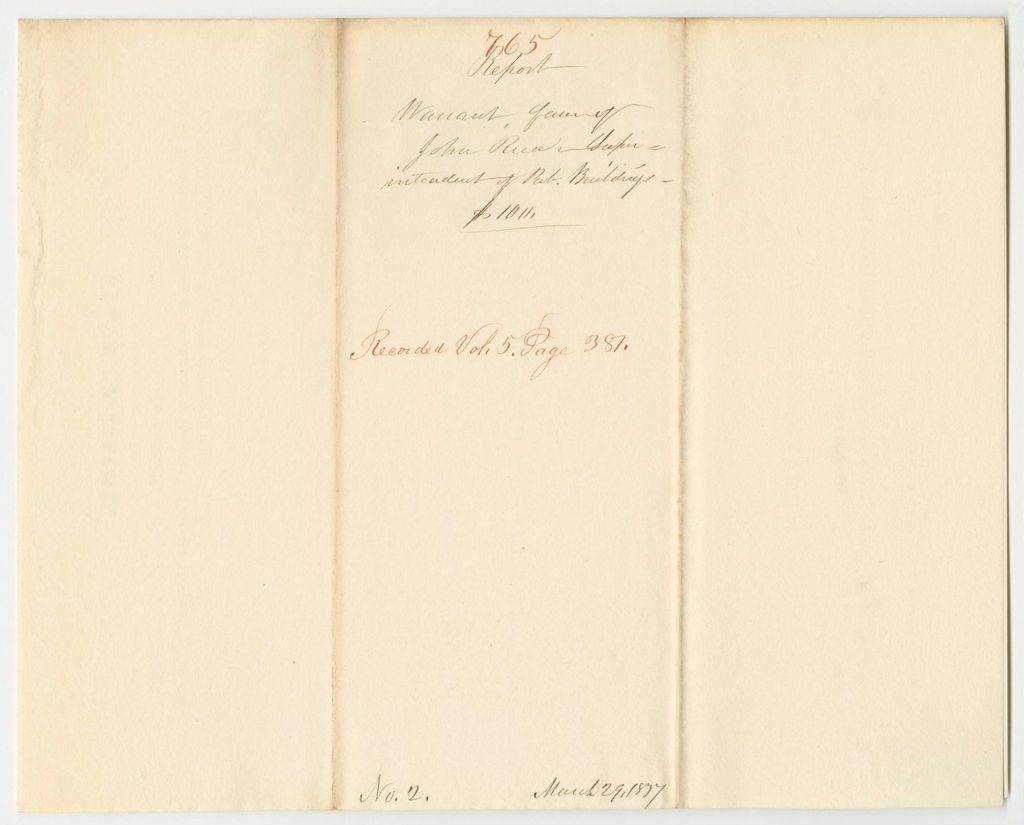 765
Report
Warrant favor of
John Rice – Super=
intendent of Pub. Buildings –
$100.
Recorded Vol. 5. Page 381.
No. 2. March 29, 1837